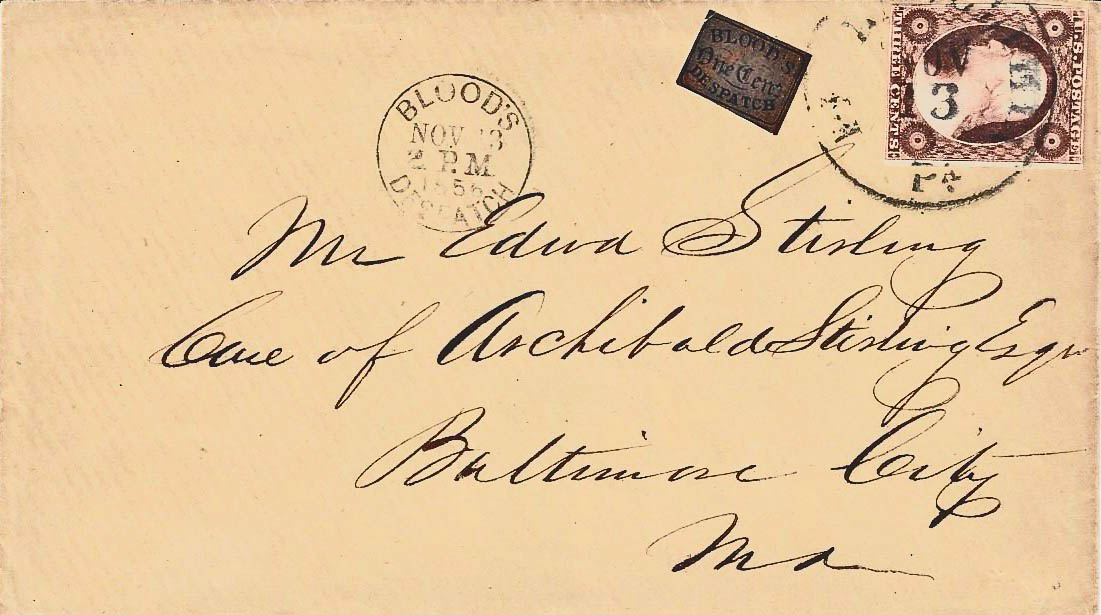 BLOOD'S
One Cent
DESPATCH
U.S. POSTAGE
THREE CENTS
NOV
13
Pa
BLOOD'S
NOV 13
2 P.M.
1856
DESPATCH
Mr Edwd Stirling
Care of Archibald Stirling Esqr
Baltimore City
Md